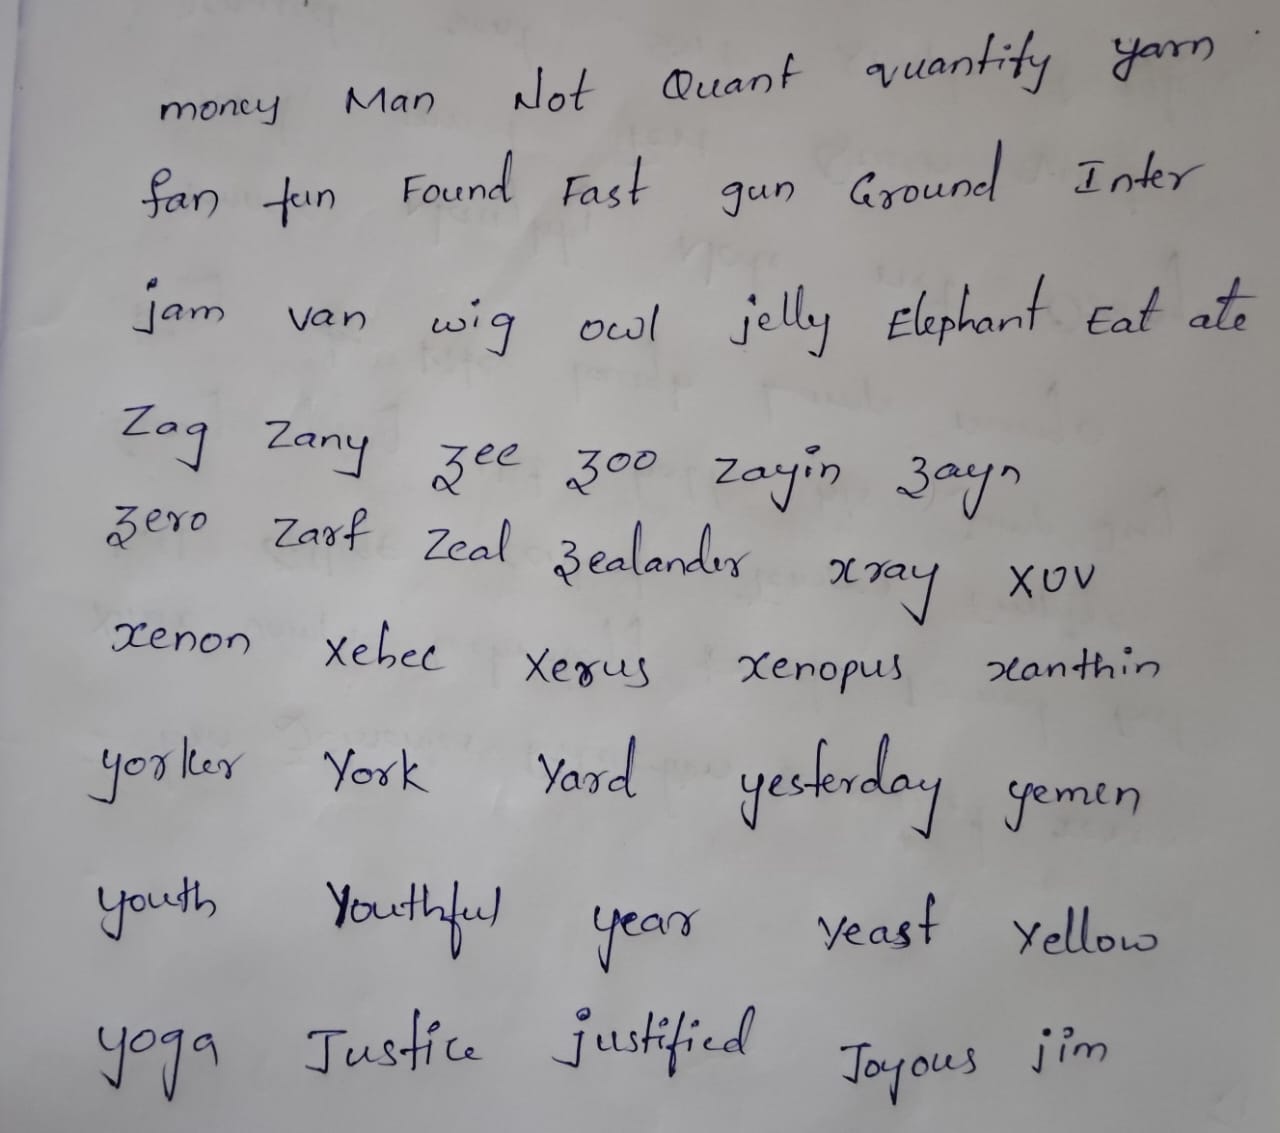 money Man Not Quant quantity yarn
fan fun Found Fast gun Ground Inter
jam van wig owl jelly Elephant Eat ate
Zag Zany zee zoo zayin zayn
zero Zarf Zeal zealander xray XUV
xenon Xebec Xerus xenopus xanthin
yorker York Yard yesterday yemen
youth Youthful year Yeast Yellow
yoga Justice justified Joyous jim